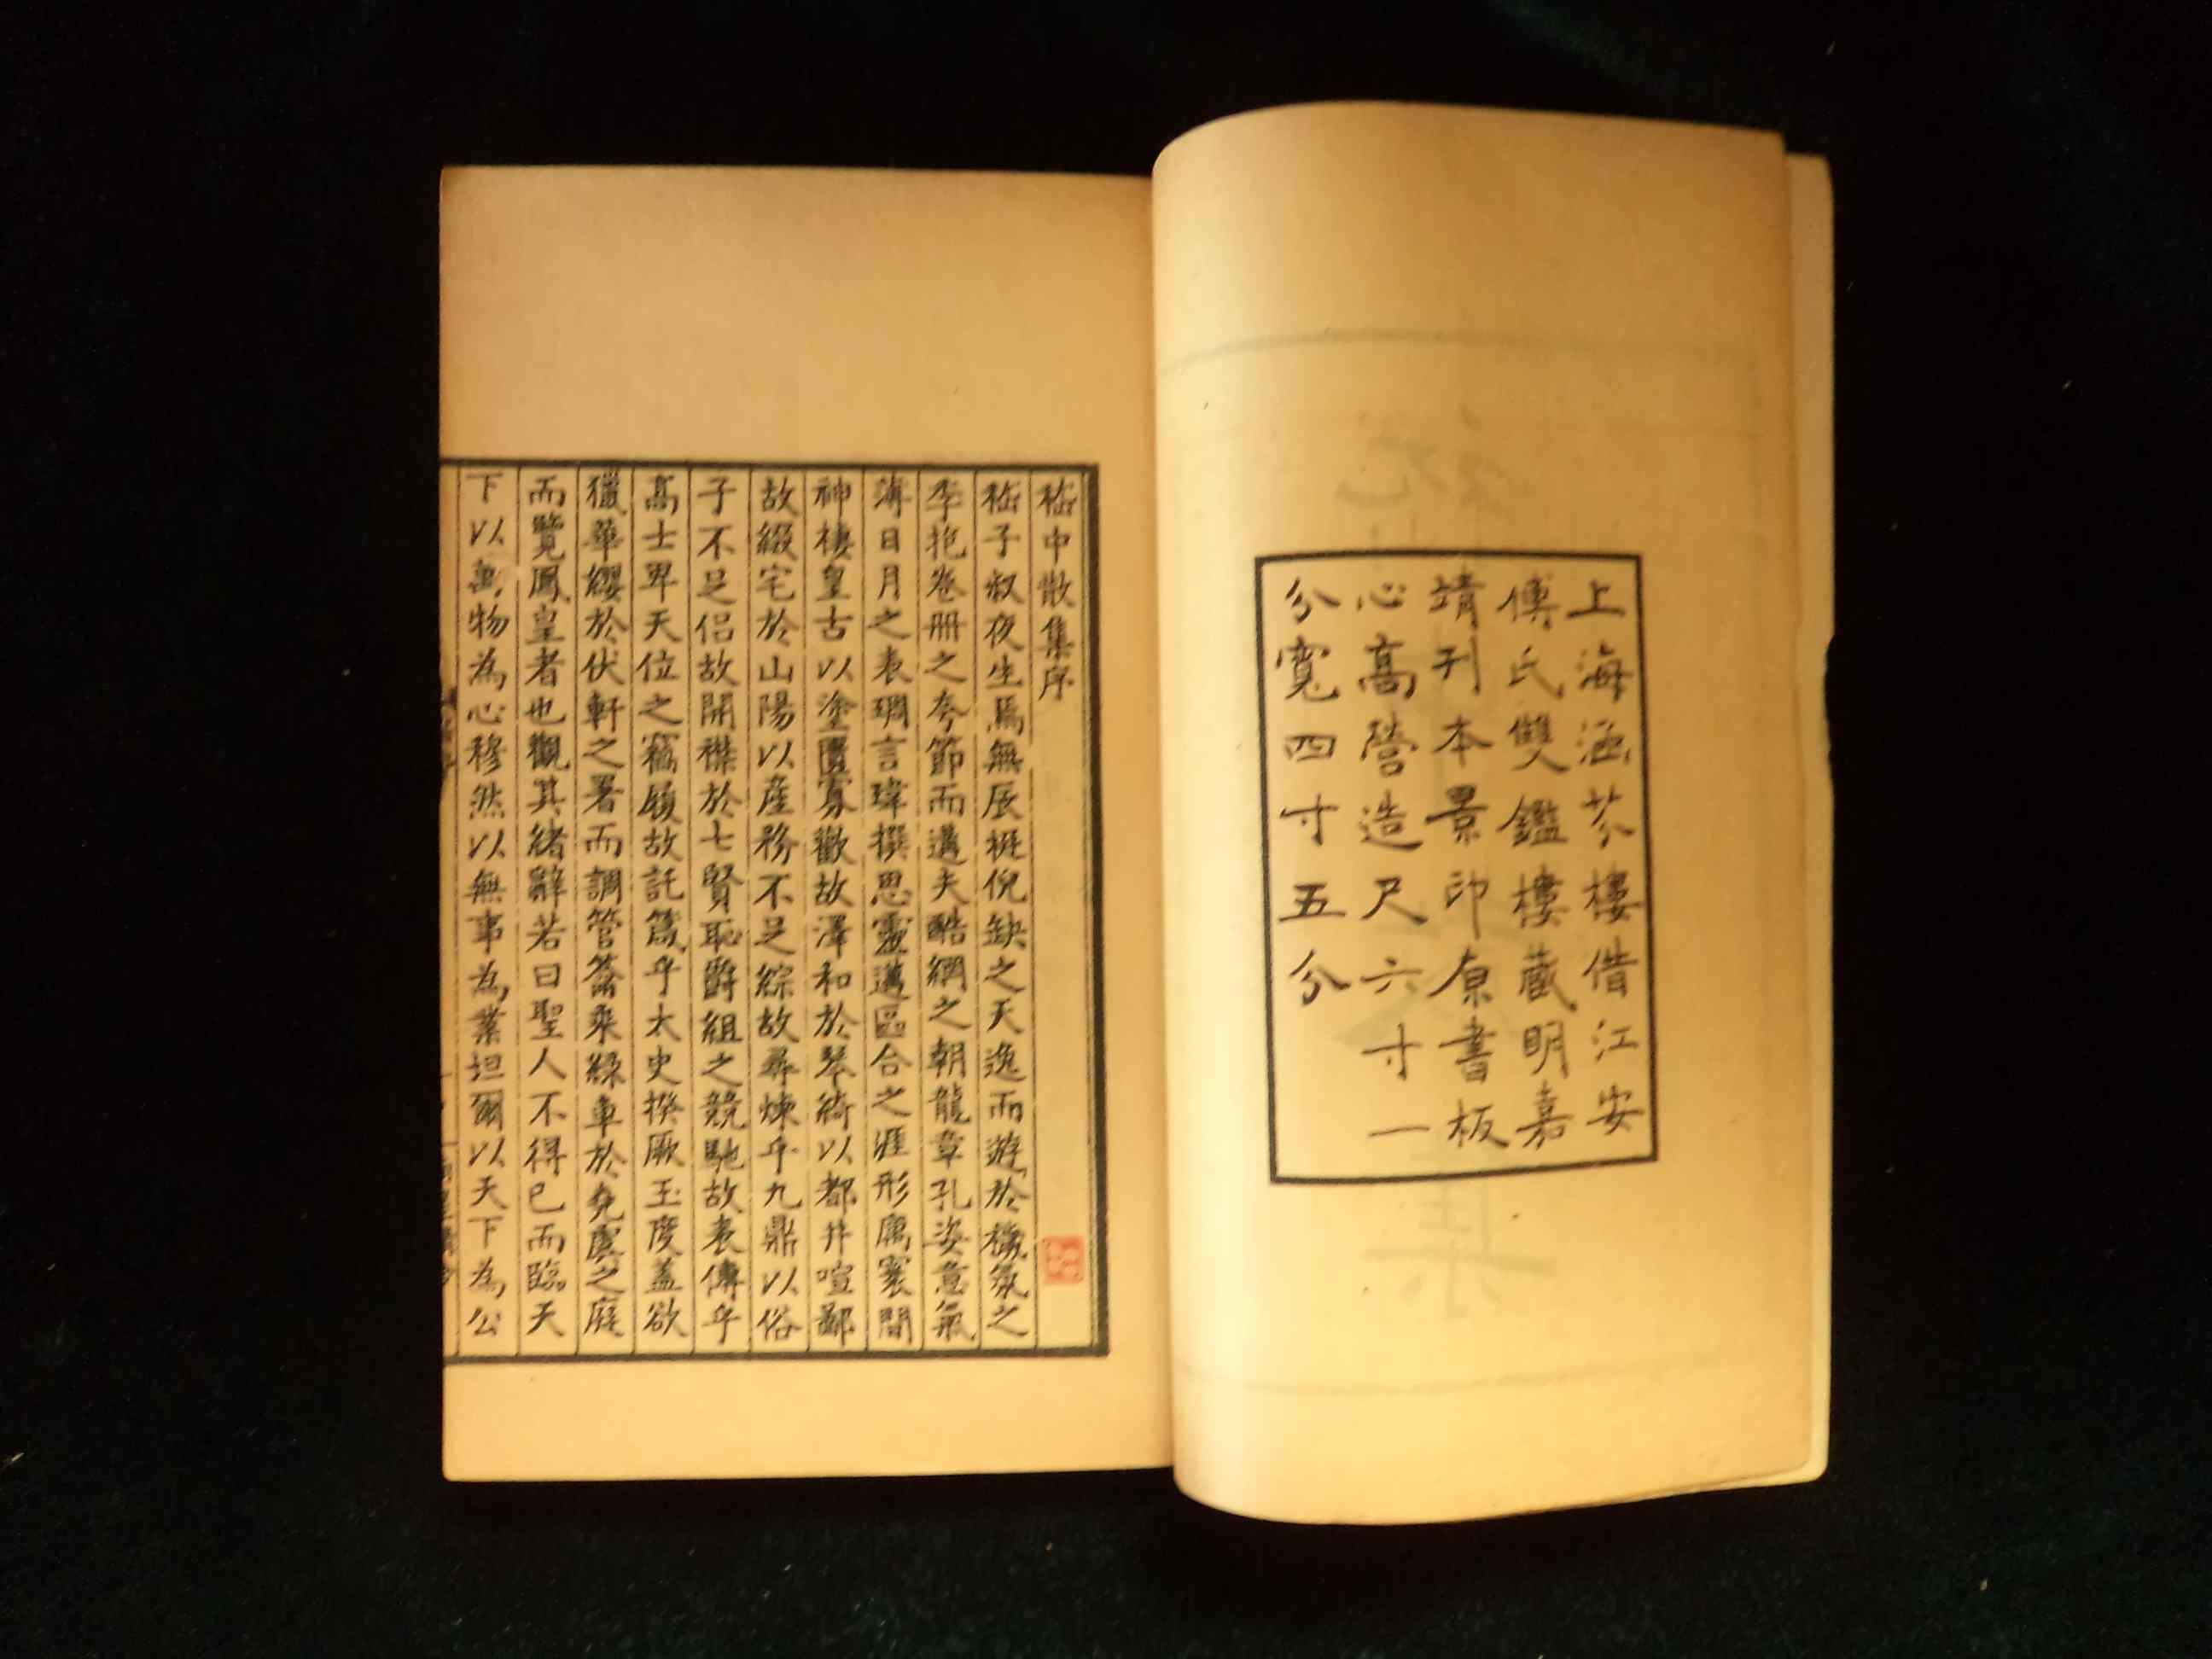 上海涵芬樓借江安
傅氏雙鑑樓藏明嘉
靖刊本景印原書板
心高營造尺六寸一
分寬四寸五分
嵇中散集序
嵇子叔夜生焉無辰挺倪缺之天逸而遊於機氛之
季抱卷冊之夸節而邁夫酷網之朝龍章孔姿意氣
薄日月之表琱言瑋撰思靈邁區合之涯形厲寰間
神棲皇古以塗匱寡歡故澤和於琴綺以都井喧鄙
故綴宅於山陽以產務不足綜故尋煉乎九鼎以俗
子不足侶故開襟於七賢恥爵組之競馳故表傳乎
高士卑天位之竊履故託箴乎太史揆厥玉度蓋欲
獵華纓於伏軒之署而調管籥乘綠車於堯虞之庭
而覽鳳皇者也觀其緒辭若曰聖人不得已而臨天
下以萬物為心穆然以無事為業坦爾以天下為公